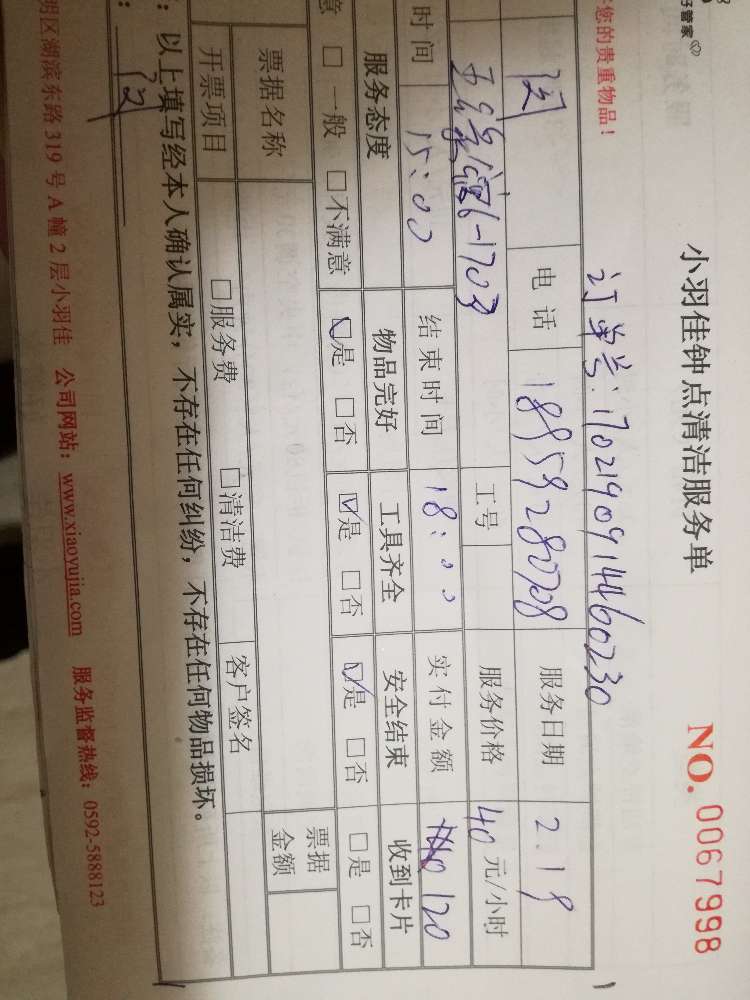 好管家
您的贵重物品！
小羽佳钟点清洁服务单
NO. 0067998
订单号：1702190914460230
电 话 18959280708 服务日期 2.19
6-1703 工号 服务价格 40 元/小时
时间 15:00 结束时间 18:00 实付金额 120
服务态度 物品完好 工具齐全 安全结束 收到卡片
意 □ 一般 □ 不满意 ☑是 □否 ☑是 □否 ☑是 □否 □是 □否
票据名称 票据金额
开票项目 □服务费 □清洁费 客户签名
：以上填写经本人确认属实，不存在任何纠纷，不存在任何物品损坏。
明区湖滨东路 319 号 A 幢 2 层小羽佳 公司网站：www.xiaoyujia.com 服务监督热线：0592-5888123